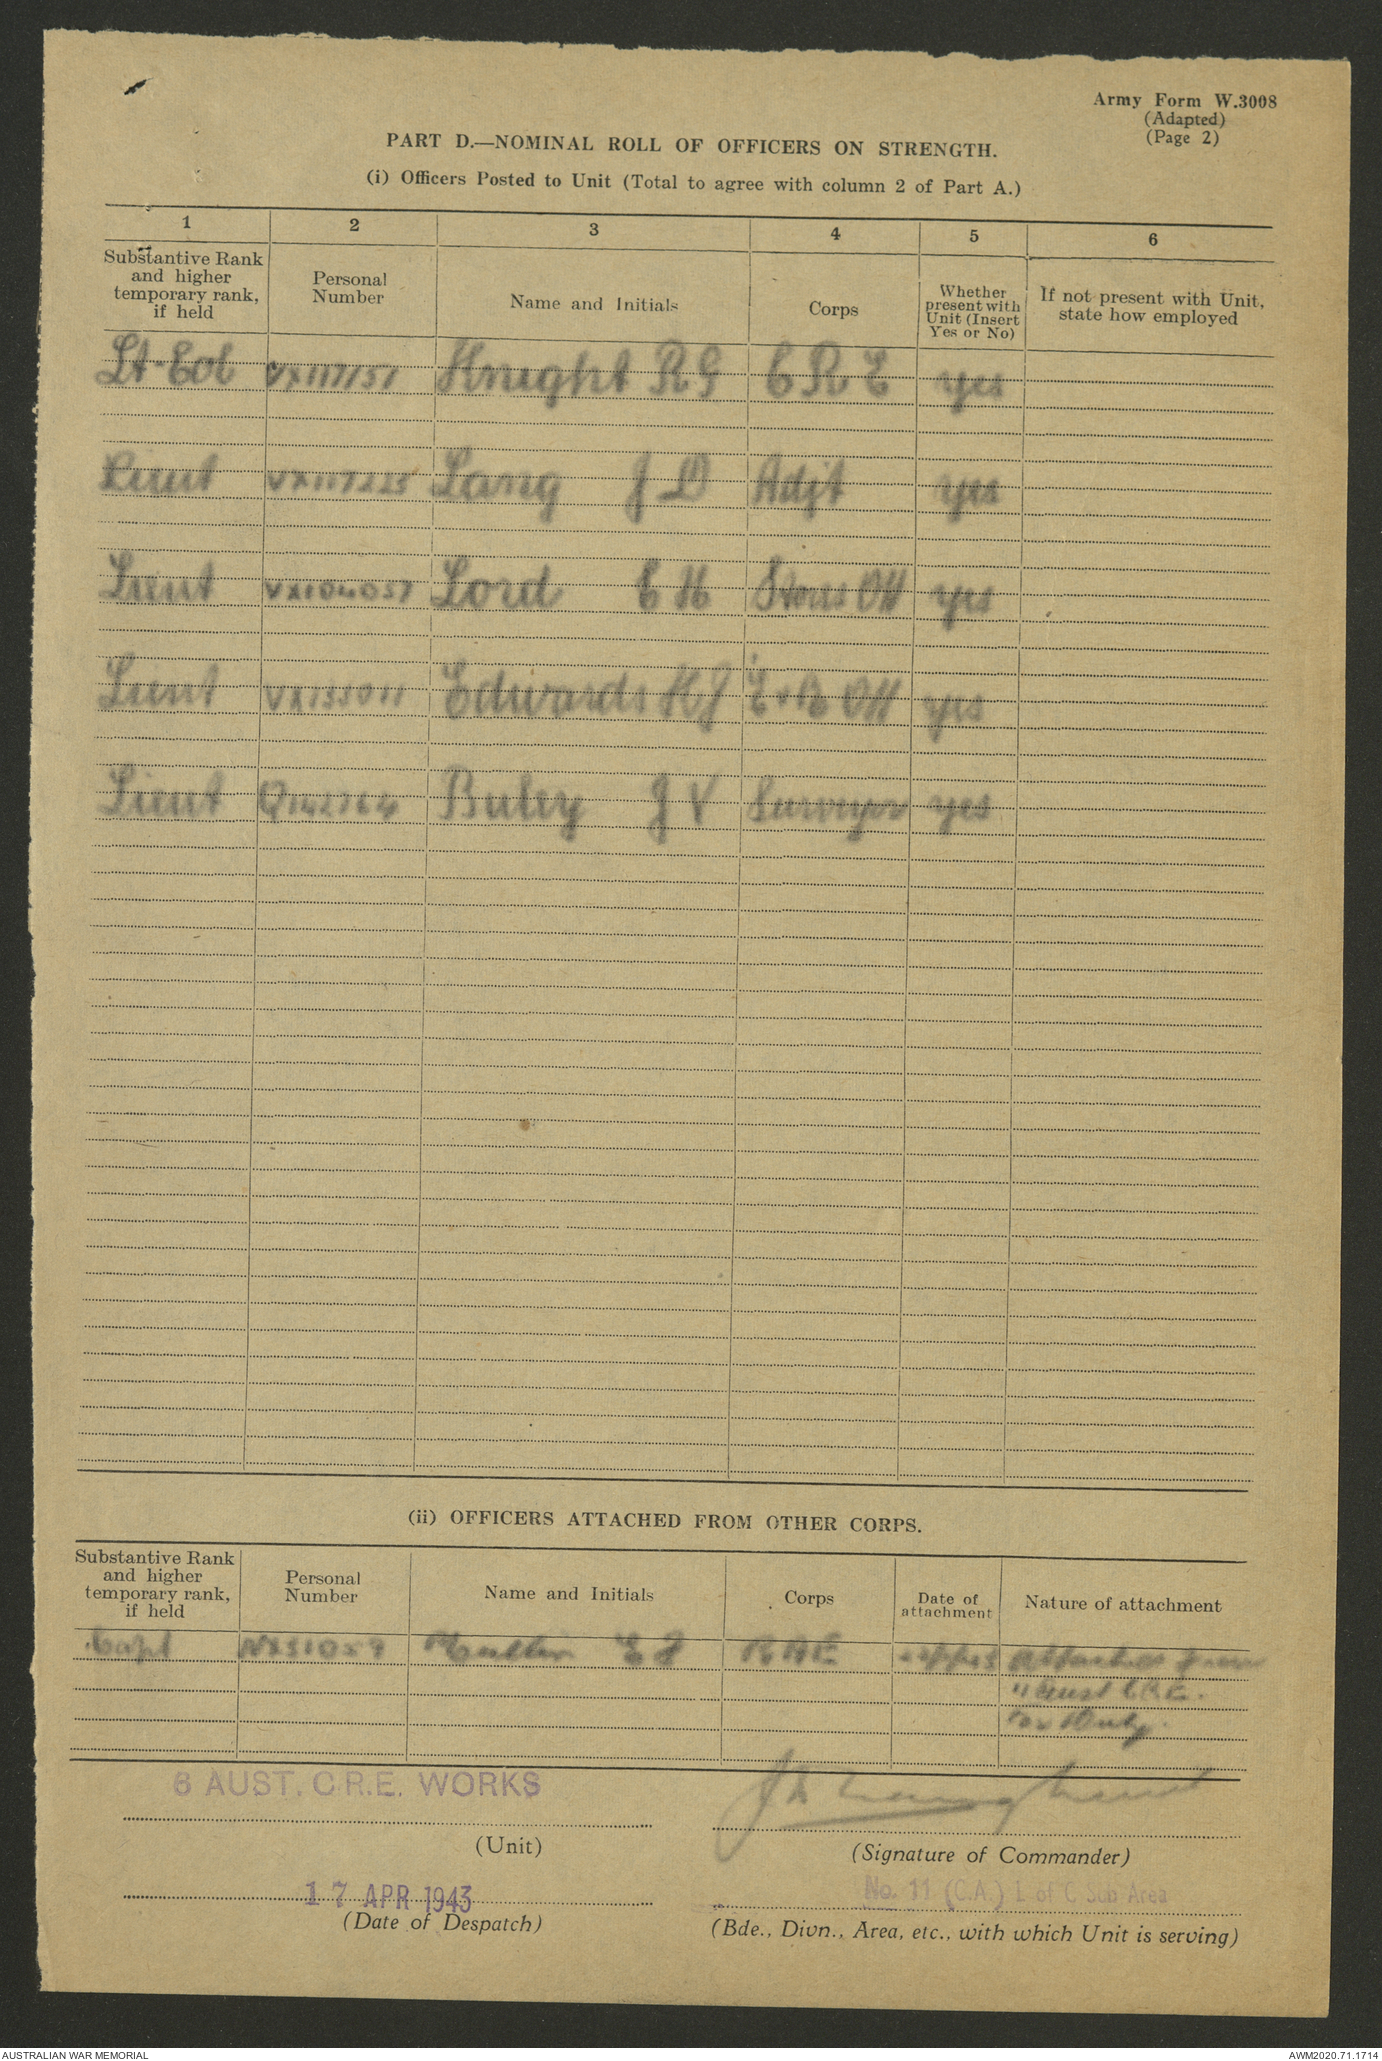 Army Form W.3008
(Adapted)
(Page 2)
PART D.—NOMINAL ROLL OF OFFICERS ON STRENGTH.
(i) Officers Posted to Unit (Total to agree with column 2 of Part A.)
1 2 3 4 5 6
Substantive Rank and higher temporary rank, if held
Personal Number
Name and Initials
Corps
Whether present with Unit (Insert Yes or No)
If not present with Unit, state how employed
Lt-Col VX117151 Knight R G C R E yes
Lieut VX117225 Lang J D Adjt yes
Lieut VX104057 Lord E H Stores Off yes
Lieut VX133011 Edwards K J E & M Off yes
Lieut Q142764 Buley J V Surveyor yes
(ii) OFFICERS ATTACHED FROM OTHER CORPS.
Substantive Rank and higher temporary rank, if held
Personal Number
Name and Initials
Corps
Date of attachment
Nature of attachment
Capt RAE Attached from
11 Aust CRE.
for Duty.
6 AUST. C.R.E. WORKS
(Unit)
(Signature of Commander)
17 APR 1943
(Date of Despatch)
No. 11 (C.A.) L of C Sub Area
(Bde., Divn., Area, etc., with which Unit is serving)
AUSTRALIAN WAR MEMORIAL
AWM2020.71.1714